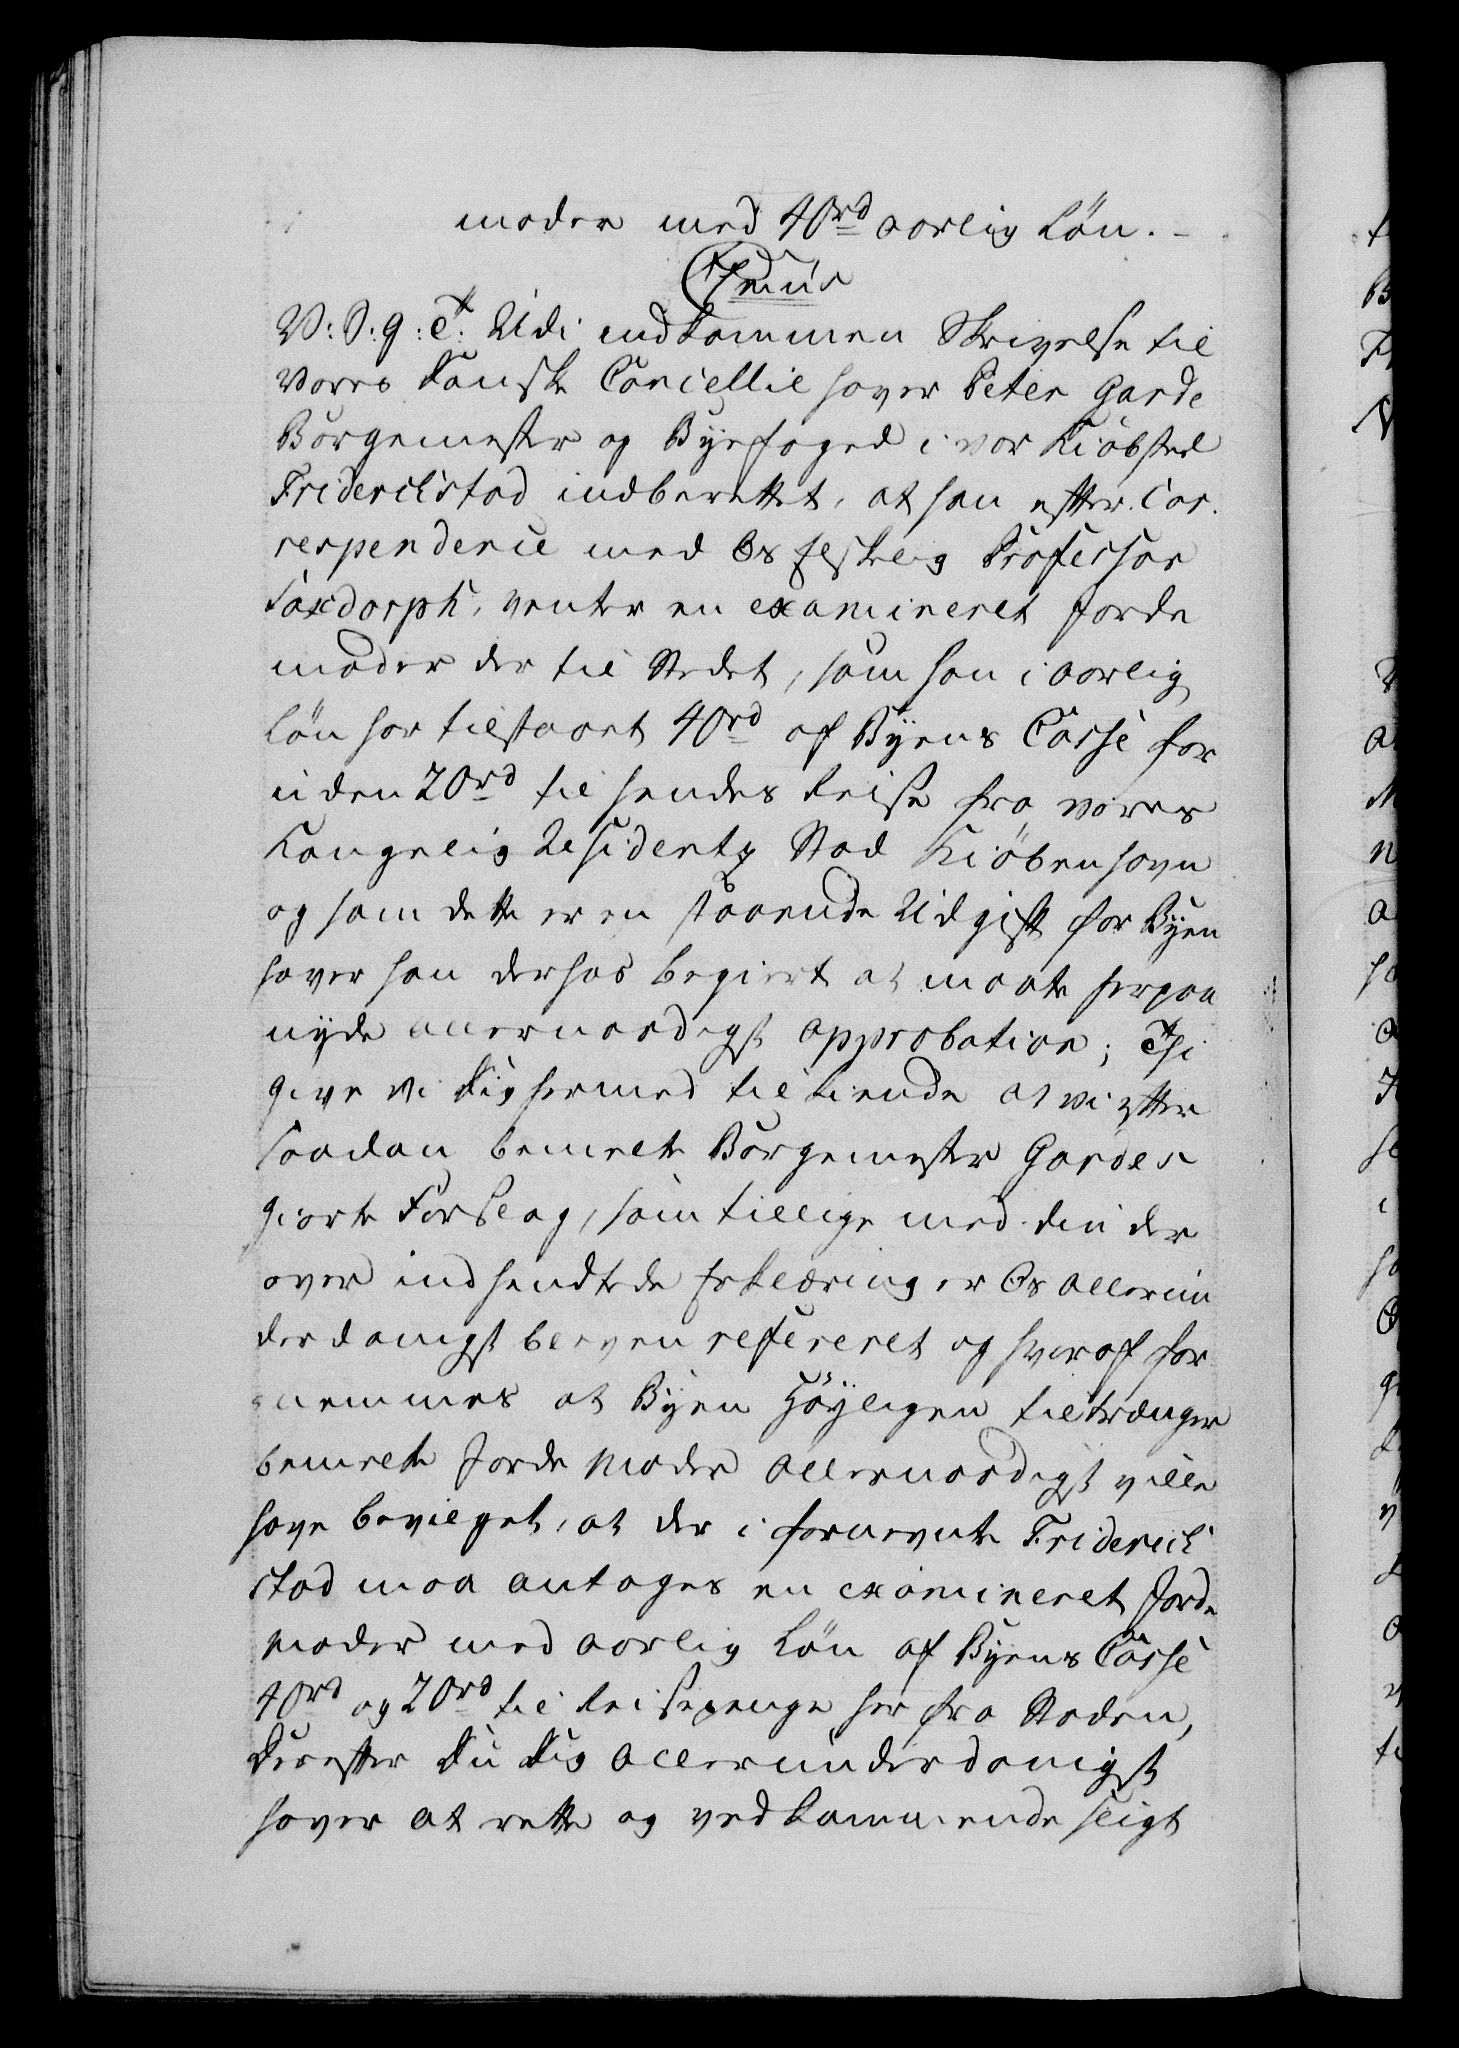 moder med 40rd aarlig Løn. –
V: S: G: T: Udi indkommen Skrivelse til
Vores Danske Cancellie haver Peter Garde
Borgemester og Byefoged i vor Kiøbsted
Fridericstad indberettet, at han efter Cor-
respondence med Os Elskelig Professor
Saxdorph, venter en examineret Jorde
moder der til Stedet, som han i aarlig
Løn har tilstaaet 40rd af Byens Casse for
uden 20rd til hendes Reise fra vores
Kongelig Residentz Stad Kiøbenhavn
og som dette er en staaende Udgift for Byen
haver han derhos begiert at maatte herpaa
nyde allernaadigst approbation; Thi
give vi Dig hermed tilkiende at vi efter
saadan bemelte Borgemester Gardes
giorte Forslag, som tillige med din der
over indsendte Erklæring er Os allerun
derdanigst bleven refereret og hvoraf for
nemmes at Byen Høyligen tiltrænger
bemelte Jorde Moder allernaadigst ville
have bevilget, at der i fornevnte Frideric
stad maa antages en examineret Jorde
Moder med aarlig Løn af Byens Casse
40rd og 20rd til Reisepenge her fra Staden,
Derefter Du Dig allerunderdanigst
haver at rette og vedkommende sligt